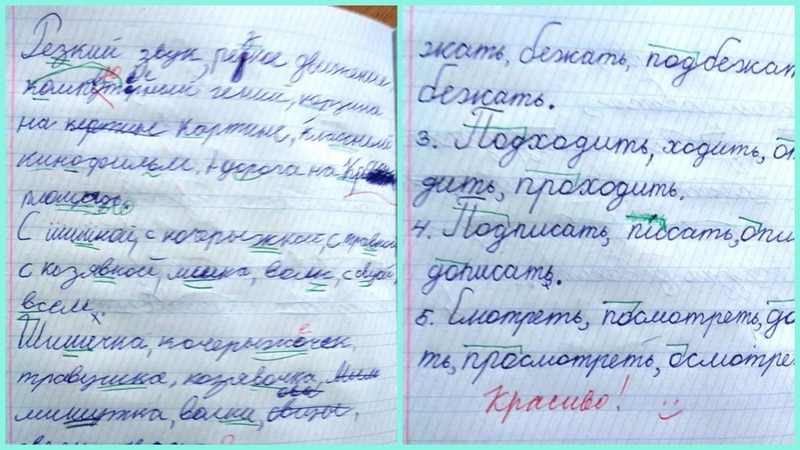 Резкий звук, редкое движение,
компютерний гений, корзина
на картине, классный
кинофильм, дорога на
площадь.
С шишкой, с кочерыжкой, с травкой
с козявкой, мишка, волки, с овцой,
всем.
Шишечка, кочерыжочек,
травушка, козявочка,
мишутка, волки,
жать, бежать, подбежать
бежать.
3. Подходить, ходить, от
дить, проходить.
4. Подписать, писать, опи
дописать.
5. Смотреть, посмотреть, до
ть, просмотреть, осмотре
Красиво!